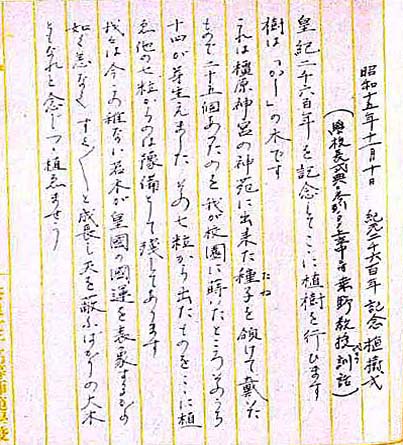 昭和十五年十一月十日 紀元二千六百年記念植樹式
(学校長式典参列の上京中ニ付 来野教授訓話)
皇紀二千六百年を記念しここに植樹を行ひます
樹は「かし」の木です
これは橿原神宮の神苑に出来た種子を頒けて戴いた
もので二十五個あったのを我が校園に蒔いたところそのうち
十四が芽生えました その七粒から出たものをここに植
ゑ他の七粒からのは予備として残してあります
我等は今この稚ない若木が皇国の国運を表象するが
如く恙なくすく〳〵と成長し天を蔽ふばかりの大木
となれと念じつゝ植ゑませう